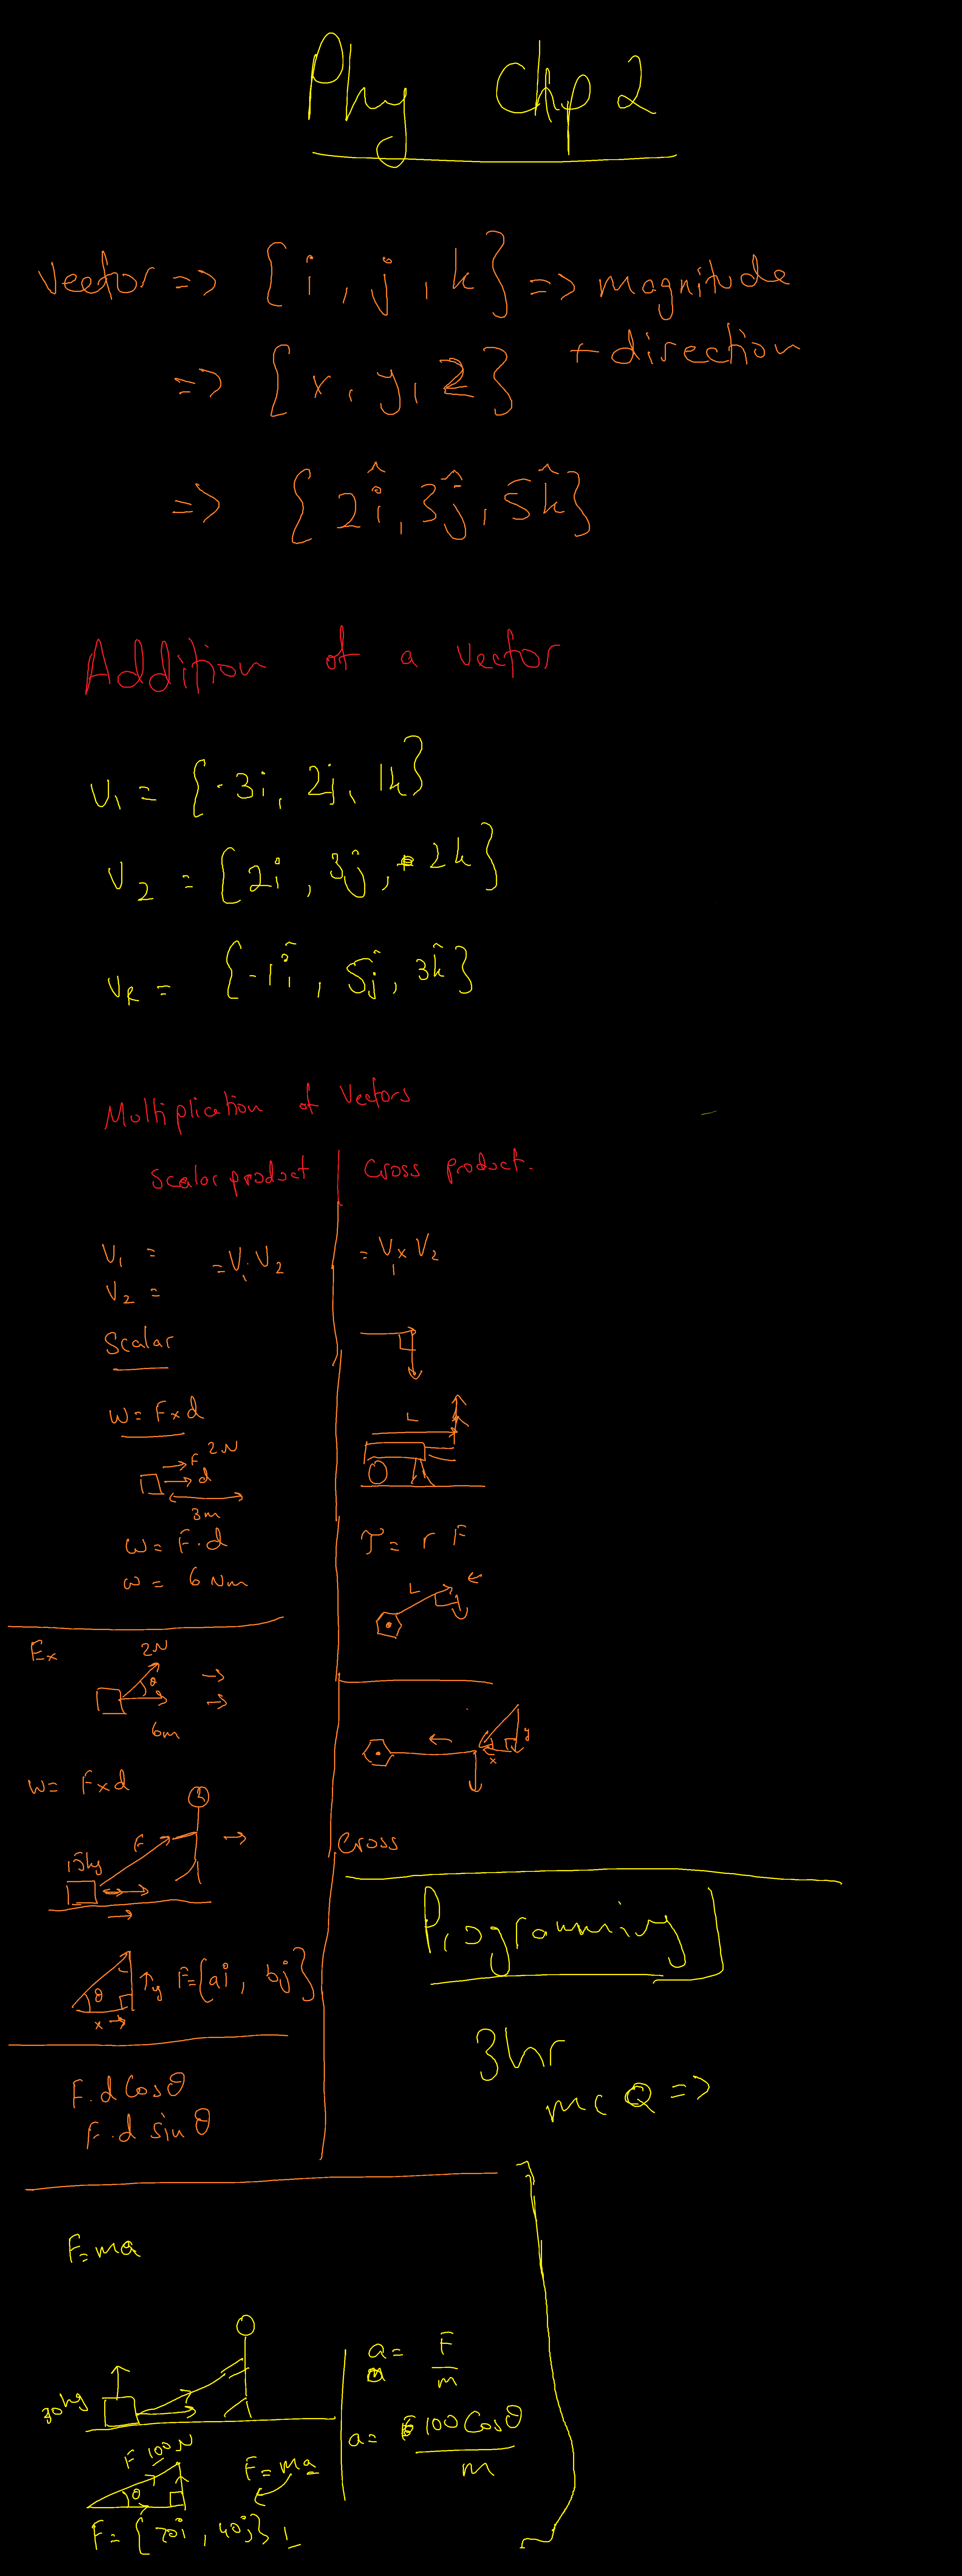 Phy Chp 2
Vector => {i, j, k} => magnitude
+ direction
=> {x, y, z}
=> {2î, 3ĵ, 5k̂}
Addition of a vector
V₁ = {-3i, 2j, 1k}
V₂ = {2i, 3j, 2k}
VR = {-1î, 5ĵ, 3k̂}
Multiplication of Vectors
Scalar product
V₁ =
= V₁ . V₂
V₂ =
Scalar
W = F x d
F 2N
d
3m
W = F . d
W = 6 Nm
Ex
2N
θ
6m
W = F x d
F
15kg
θ
y F = {ai, bj}
x
F . d Cosθ
F . d sinθ
Cross product.
= V₁ x V₂
L
τ = r F
L
y
x
Cross
Programming
3hr
MCQ =>
F = ma
30kg
F 100N
θ
F = ma
F = {70i, 40j}
a = F/m
a = 100 Cosθ/m